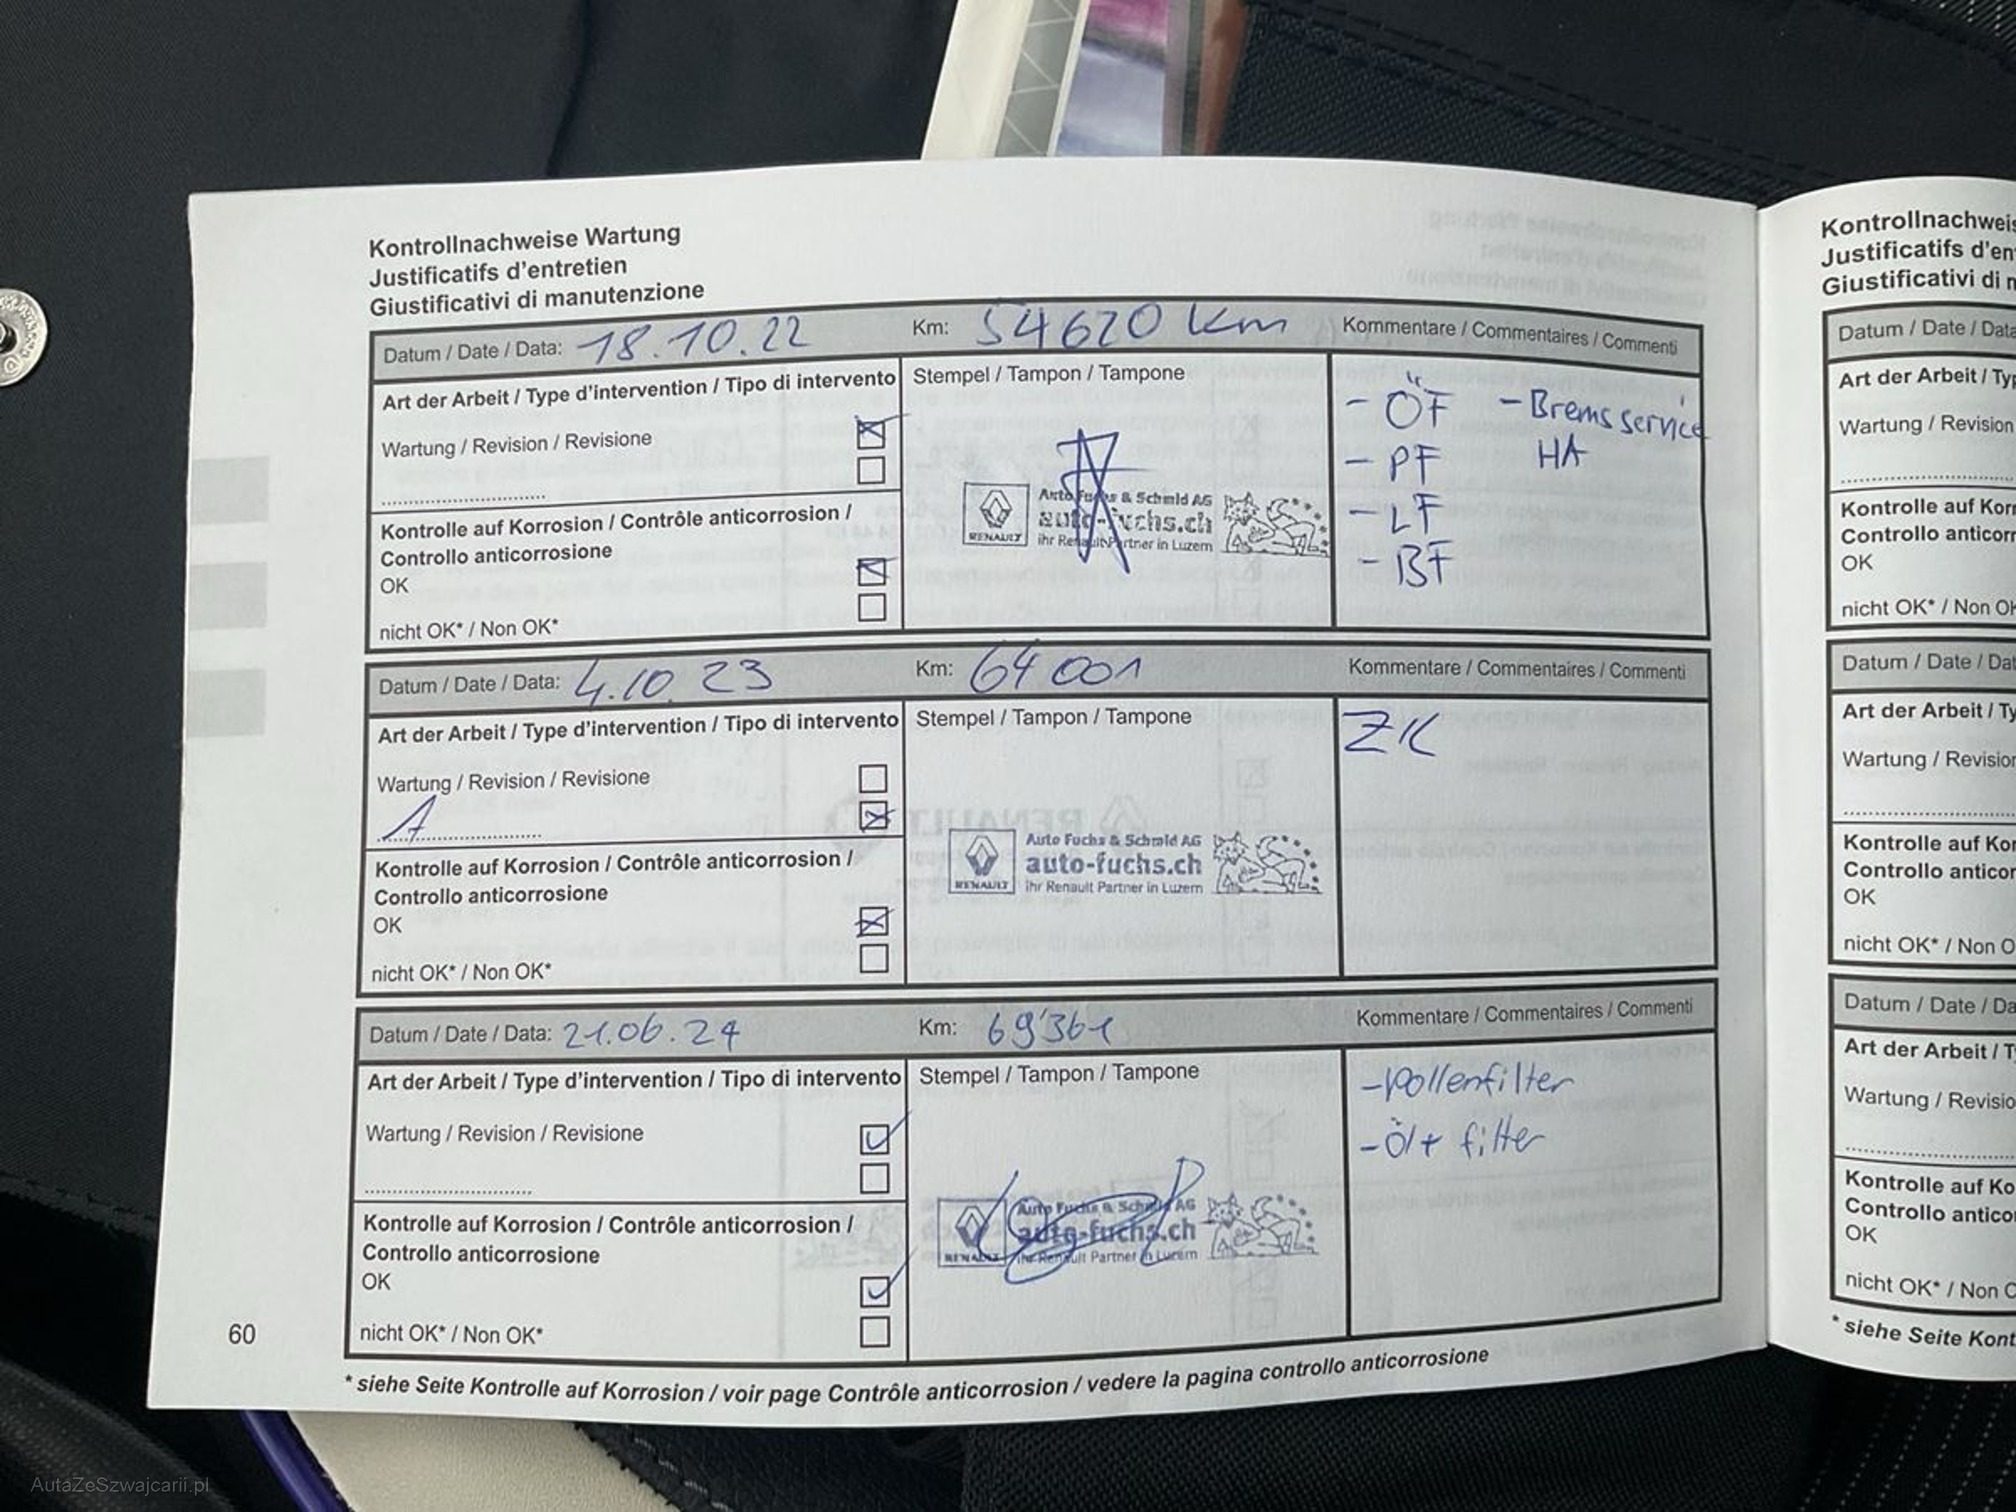 Kontrollnachweise Wartung
Justificatifs d'entretien
Giustificativi di manutenzione
Datum / Date / Data: 18.10.22
Km: 54620 km
Kommentare / Commentaires / Commenti
Art der Arbeit / Type d'intervention / Tipo di intervento
Stempel / Tampon / Tampone
Wartung / Revision / Revisione
Kontrolle auf Korrosion / Contrôle anticorrosion /
Controllo anticorrosione
OK
nicht OK* / Non OK*
RENAULT
Auto Fuchs & Schmid AG
auto-fuchs.ch
ihr Renault Partner in Luzern
- ÖF - Bremsservice
- PF HA
- LF
- BF
Datum / Date / Data: 4.10.23
Km: 64001
Kommentare / Commentaires / Commenti
Art der Arbeit / Type d'intervention / Tipo di intervento
Stempel / Tampon / Tampone
ZK
Wartung / Revision / Revisione
A
Kontrolle auf Korrosion / Contrôle anticorrosion /
Controllo anticorrosione
OK
nicht OK* / Non OK*
RENAULT
Auto Fuchs & Schmid AG
auto-fuchs.ch
ihr Renault Partner in Luzern
Datum / Date / Data: 21.06.24
Km: 69'361
Kommentare / Commentaires / Commenti
Art der Arbeit / Type d'intervention / Tipo di intervento
Stempel / Tampon / Tampone
- Pollenfilter
- Öl + filter
Wartung / Revision / Revisione
Kontrolle auf Korrosion / Contrôle anticorrosion /
Controllo anticorrosione
OK
nicht OK* / Non OK*
RENAULT
Auto Fuchs & Schmid AG
auto-fuchs.ch
ihr Renault Partner in Luzern
60
* siehe Seite Kontrolle auf Korrosion / voir page Contrôle anticorrosion / vedere la pagina controllo anticorrosione
Kontrollnachweis
Justificatifs d'en
Giustificativi di m
Datum / Date / Data
Art der Arbeit / Typ
Wartung / Revision
Kontrolle auf Korr
Controllo anticorr
OK
nicht OK* / Non OK
Datum / Date / Dat
Art der Arbeit / Ty
Wartung / Revision
Kontrolle auf Kor
Controllo anticor
OK
nicht OK* / Non O
Datum / Date / Da
Art der Arbeit / T
Wartung / Revisio
Kontrolle auf Ko
Controllo antico
OK
nicht OK* / Non O
* siehe Seite Kont
AutaZeSzwajcarii.pl